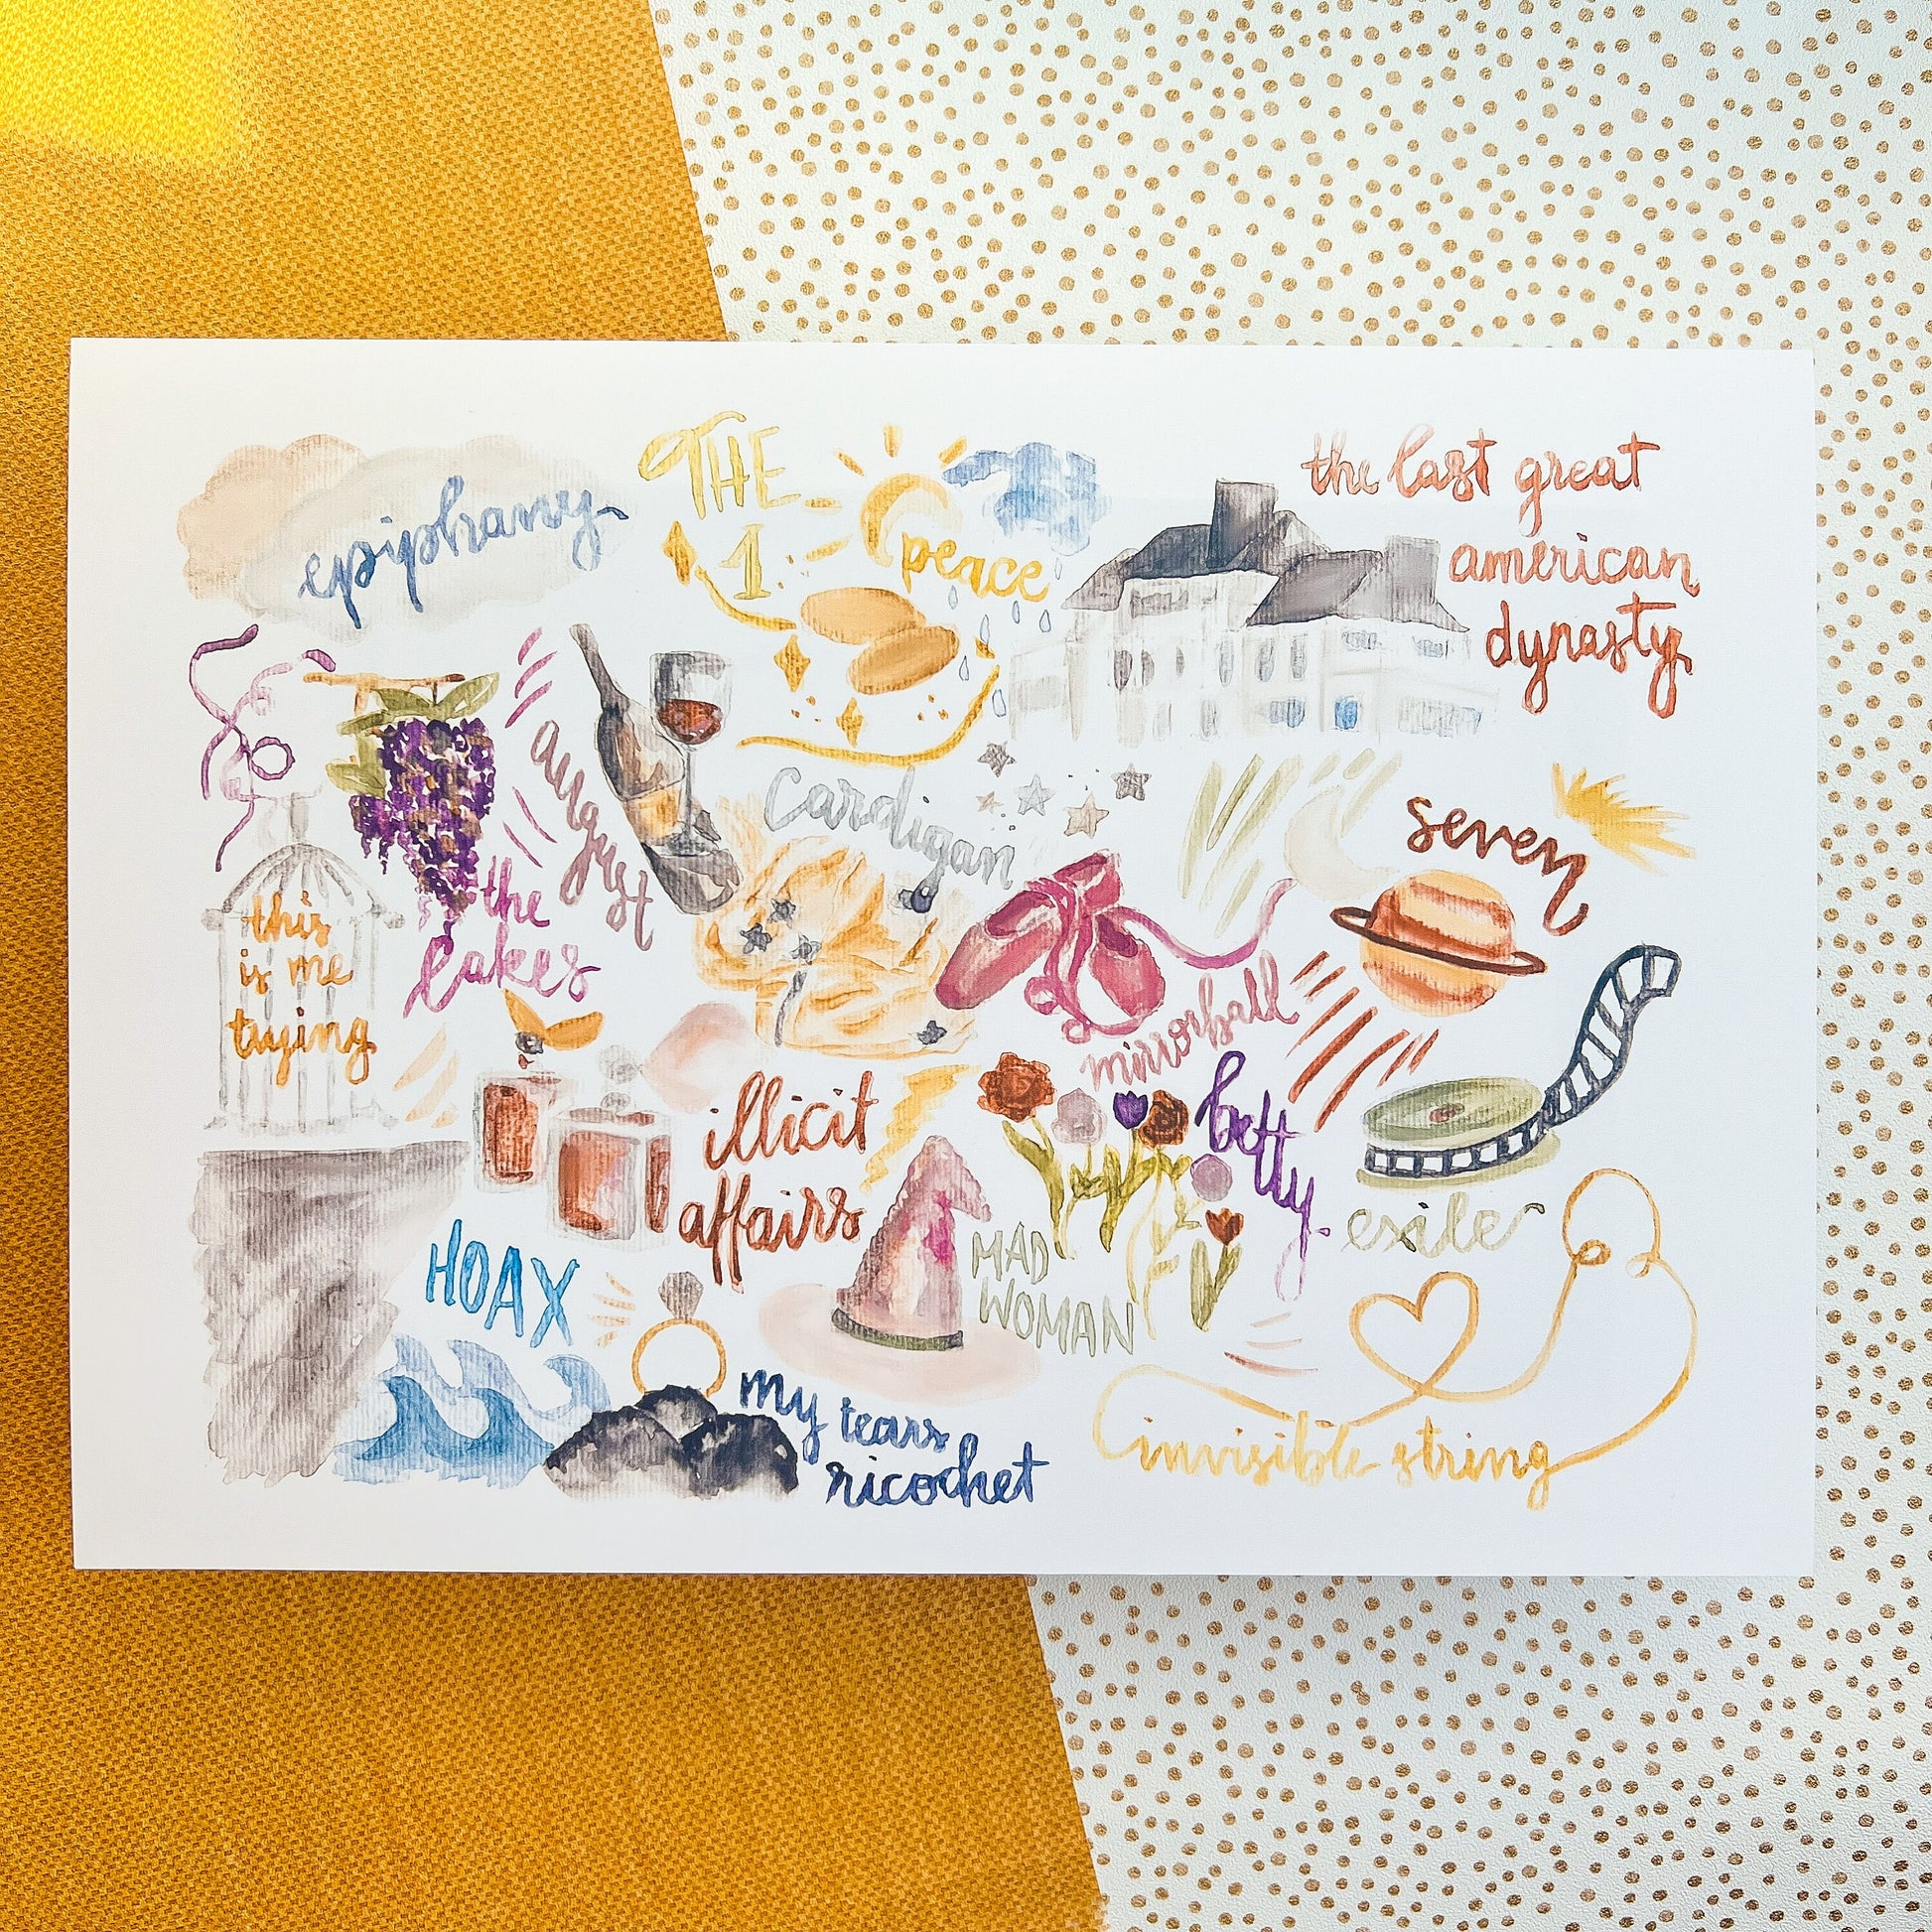 epiphany
THE
1
peace
the last great
american
dynasty
august
cardigan
seven
the
lakes
this
is me
trying
mirrorball
illicit
affairs
betty
MAD
WOMAN
exile
HOAX
my tears
ricochet
invisible string